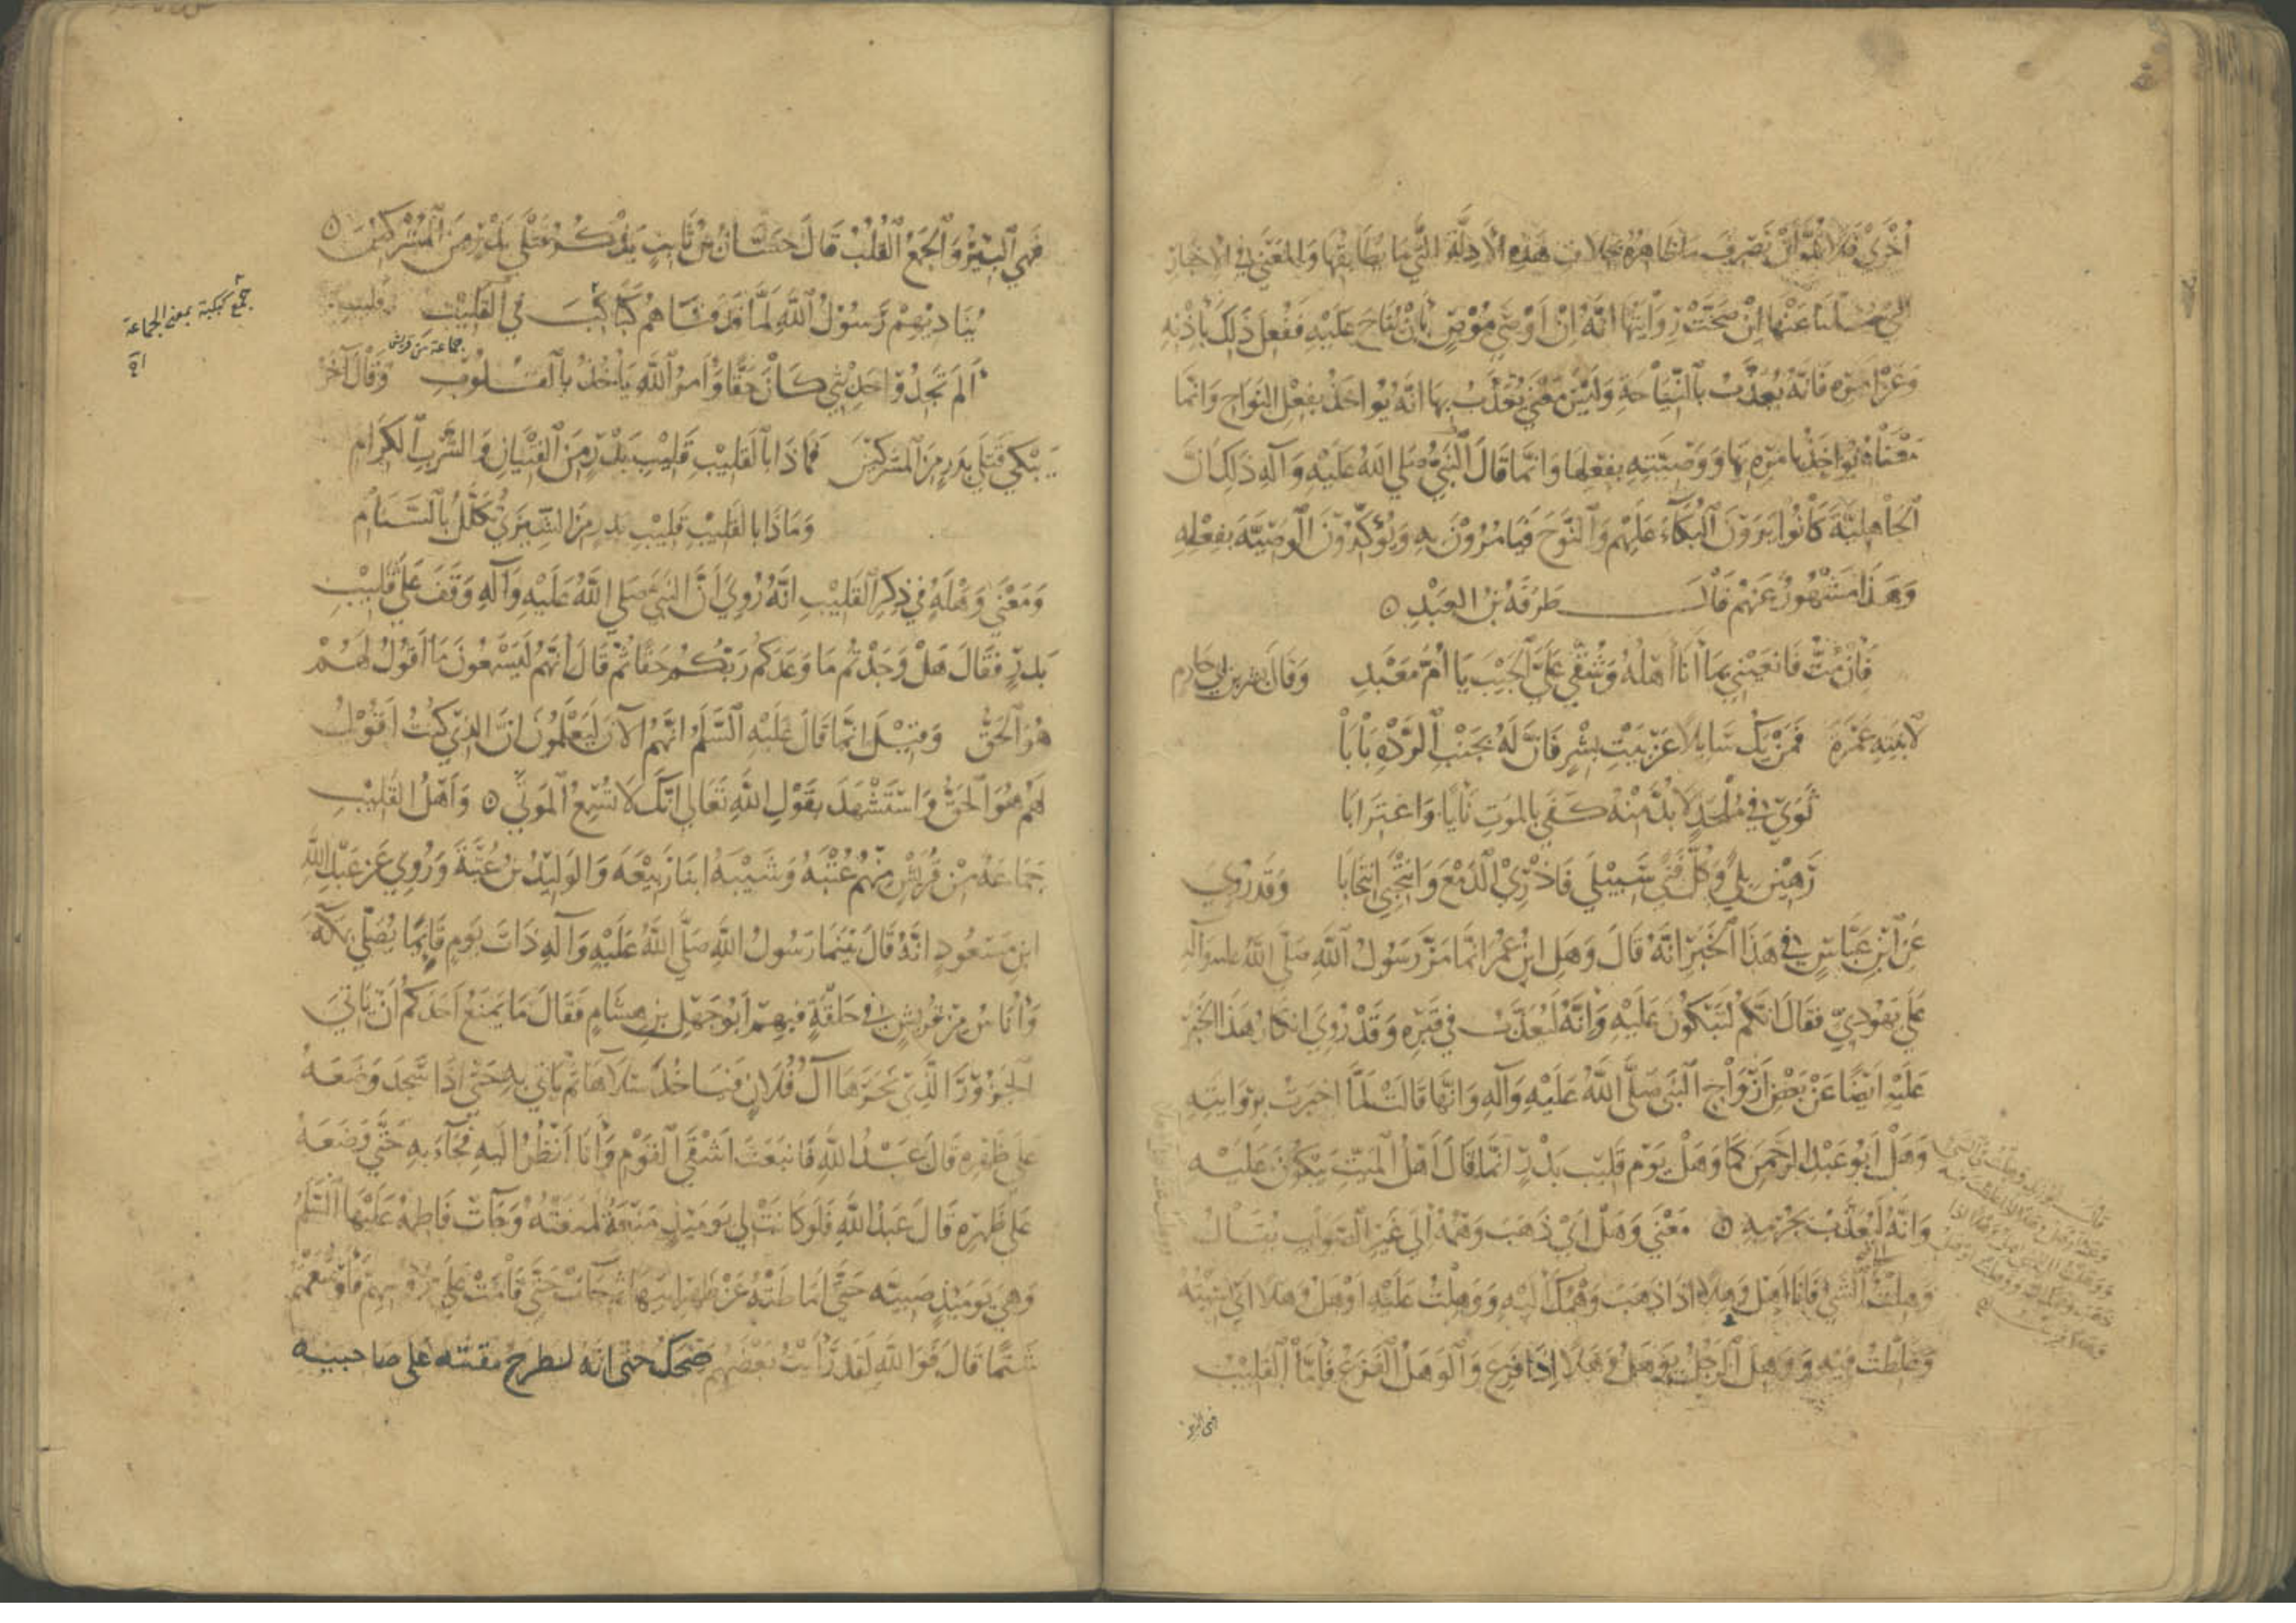 أُخْرَى فَلَا بُدَّ أَنْ نَصْرِفَ مَا ظَاهِرُهُ بِخِلَافِ هَذِهِ الْأَدِلَّةِ إِلَى مَا يُطَابِقُهَا وَالْمَعْنَى فِي الْأَخْبَارِ
الَّتِي سُئِلْنَا عَنْهَا إِنْ صَحَّتْ رِوَايَتُهَا أَنَّهُ إِنْ أَوْصَى مُوصٍ بِأَنْ يُنَاحَ عَلَيْهِ فَفُعِلَ ذَلِكَ بِإِذْنِهِ
وَعَنْ أَمْرِهِ فَإِنَّهُ يُعَذَّبُ بِالنِّيَاحَةِ وَلَيْسَ مَعْنَى يُعَذَّبُ بِهَا أَنَّهُ يُؤَاخَذُ بِفِعْلِ النُّوَاحِ وَإِنَّمَا
مَعْنَاهُ يُؤَاخَذُ بِأَمْرِهِ بِهَا وَوَصِيَّتِهِ بِفِعْلِهَا وَإِنَّمَا قَالَ النَّبِيُّ صَلَّى اللَّهُ عَلَيْهِ وَآلِهِ ذَلِكَ لِأَنَّ
الْجَاهِلِيَّةَ كَانُوا يَرَوْنَ الْبُكَاءَ عَلَيْهِمْ وَالنَّوْحَ فَيَأْمُرُونَ بِهِ وَيُؤَكِّدُونَ الْوَصِيَّةَ بِفِعْلِهِ
وَهَذَا مَشْهُورٌ عَنْهُمْ قَالَ طَرَفَةُ بْنُ الْعَبْدِ
فَإِنْ مُتُّ فَانْعَيْنِي بِمَا أَنَا أَهْلُهُ وَشُقِّي عَلَيَّ الْجَيْبَ يَا أُمَّ مَعْبَدِ وَقَالَ بِشْرُ بْنُ أَبِي خَازِمٍ
لِابْنَتِهِ عَمْرَةَ فَمَنْ يَكُ سَائِلًا عَنْ بَيْتِ بِشْرٍ فَإِنَّ لَهُ بِجَنْبِ الرَّدْهِ بَابَا
ثَوَى فِي مُلْحَدٍ لَا بُدَّ مِنْهُ كَفَى بِالْمَوْتِ نَأْيًا وَاغْتِرَابَا
رَهِينَ بِلًى وَكُلُّ فَتًى سَيَبْلَى فَاذْرِي الدَّمْعَ وَانْتَحِبِي انْتِحَابَا وَقَدْ رُوِيَ
عَنِ ابْنِ عَبَّاسٍ فِي هَذَا الْخَبَرِ أَنَّهُ قَالَ وَهَلَ ابْنُ عُمَرَ إِنَّمَا مَرَّ رَسُولُ اللَّهِ صَلَّى اللَّهُ عَلَيْهِ وَآلِهِ
عَلَى يَهُودِيٍّ فَقَالَ إِنَّكُمْ لَتَبْكُونَ عَلَيْهِ وَإِنَّهُ لَيُعَذَّبُ فِي قَبْرِهِ وَقَدْ رُوِيَ إِنْكَارُ هَذَا الْخَبَرِ
عَلَيْهِ أَيْضًا عَنْ بَعْضِ أَزْوَاجِ النَّبِيِّ صَلَّى اللَّهُ عَلَيْهِ وَآلِهِ وَأَنَّهَا قَالَتْ لَمَّا أُخْبِرَتْ بِرِوَايَتِهِ
وَهَلَ أَبُو عَبْدِ الرَّحْمَنِ كَمَا وَهَلَ يَوْمَ قَلِيبِ بَدْرٍ إِنَّمَا قَالَ أَهْلُ الْمَيِّتِ يَبْكُونَ عَلَيْهِ
وَإِنَّهُ لَيُعَذَّبُ بِجُرْمِهِ مَعْنَى وَهَلَ أَيْ ذَهَبَ وَهْمُهُ إِلَى غَيْرِ الصَّوَابِ يُقَالُ
وَهَلْتُ إِلَى الشَّيْءِ فَأَنَا أَهِلُ وَهْلًا إِذَا ذَهَبَ وَهْمُكَ إِلَيْهِ وَوَهِلْتُ عَلَيْهِ أَوْهَلُ وَهَلًا أَيْ نَسِيتُهُ
وَغَلِطْتُ فِيهِ وَوَهِلَ الرَّجُلُ يَوْهَلُ وَهَلًا إِذَا فَزِعَ وَالْوَهَلُ الْفَزَعُ فَأَمَّا الْقَلِيبُ
فهي البئر
فَهِيَ الْبِئْرُ وَالْجَمْعُ الْقُلُبُ قَالَ حَسَّانُ بْنُ ثَابِتٍ يَذْكُرُ قَتْلَى بَدْرٍ مِنَ الْمُشْرِكِينَ
يُنَادِيهِمْ رَسُولُ اللَّهِ لَمَّا قَذَفْنَاهُمْ كَبَاكِبَ فِي الْقَلِيبِ
جماعة من قريش
جمع كبكبة بمعنى الجماعة
أَلَمْ تَجِدُوا حَدِيثِي كَانَ حَقًّا وَأَمْرُ اللَّهِ يَأْخُذُ بِالْقُلُوبِ وَقَالَ آخَرُ
يَبْكِي قَتْلَى بَدْرٍ مِنَ الْمُشْرِكِينَ فَمَاذَا بِالْقَلِيبِ قَلِيبِ بَدْرٍ مِنَ الْفِتْيَانِ وَالشَّرْبِ الْكِرَامِ
وَمَاذَا بِالْقَلِيبِ قَلِيبِ بَدْرٍ مِنَ الشِّيزَى تُكَلَّلُ بِالسَّنَامِ
وَمَعْنَى وَهْلِهِ فِي ذِكْرِ الْقَلِيبِ أَنَّهُ رُوِيَ أَنَّ النَّبِيَّ صَلَّى اللَّهُ عَلَيْهِ وَآلِهِ وَقَفَ عَلَى قَلِيبِ
بَدْرٍ فَقَالَ هَلْ وَجَدْتُمْ مَا وَعَدَكُمْ رَبُّكُمْ حَقًّا ثُمَّ قَالَ إِنَّهُمْ لَيَسْمَعُونَ مَا أَقُولُ لَهُمْ
هُوَ الْحَقُّ وَقِيلَ إِنَّمَا قَالَ عَلَيْهِ السَّلَمُ إِنَّهُمُ الْآنَ لَيَعْلَمُونَ أَنَّ الَّذِي كُنْتُ أَقُولُ
لَهُمْ هُوَ الْحَقُّ وَاسْتَشْهَدَ بِقَوْلِ اللَّهِ تَعَالَى إِنَّكَ لَا تُسْمِعُ الْمَوْتَى وَأَهْلُ الْقَلِيبِ
جَمَاعَةٌ مِنْ قُرَيْشٍ مِنْهُمْ عُتْبَةُ وَشَيْبَةُ ابْنَا رَبِيعَةَ وَالْوَلِيدُ بْنُ عُتْبَةَ وَرُوِيَ عَنْ عَبْدِ اللَّهِ
ابْنِ مَسْعُودٍ أَنَّهُ قَالَ بَيْنَمَا رَسُولُ اللَّهِ صَلَّى اللَّهُ عَلَيْهِ وَآلِهِ ذَاتَ يَوْمٍ قَائِمًا يُصَلِّي بِمَكَّةَ
وَأُنَاسٌ مِنْ قُرَيْشٍ فِي حَلْقَةٍ فِيهِمْ أَبُو جَهْلِ بْنُ هِشَامٍ فَقَالَ مَا يَمْنَعُ أَحَدَكُمْ أَنْ يَأْتِيَ
الْجَزُورَ الَّذِي نَحَرَهَا آلُ فُلَانٍ فَيَأْخُذَ سَلَاهَا ثُمَّ يَأْتِيَ بِهِ حَتَّى إِذَا سَجَدَ وَضَعَهُ
عَلَى ظَهْرِهِ قَالَ عَبْدُ اللَّهِ فَانْبَعَثَ أَشْقَى الْقَوْمِ وَأَنَا أَنْظُرُ إِلَيْهِ فَجَاءَ بِهِ حَتَّى وَضَعَهُ
عَلَى ظَهْرِهِ قَالَ عَبْدُ اللَّهِ فَلَوْ كَانَتْ لِي يَوْمَئِذٍ مَنَعَةٌ لَمَنَعْتُهُ وَجَاءَتْ فَاطِمَةُ عَلَيْهَا السَّلَمُ
وَهِيَ يَوْمَئِذٍ صَبِيَّةٌ حَتَّى أَمَاطَتْهُ عَنْ ظَهْرِ أَبِيهَا ثُمَّ جَاءَتْ حَتَّى قَامَتْ عَلَى رُءُوسِهِمْ فَأَوْسَعَتْهُمْ
شَتْمًا قَالَ فَوَاللَّهِ لَقَدْ رَأَيْتُ بَعْضَهُمْ ضحك حتى انه ليطرح نفسه على صاحبيه